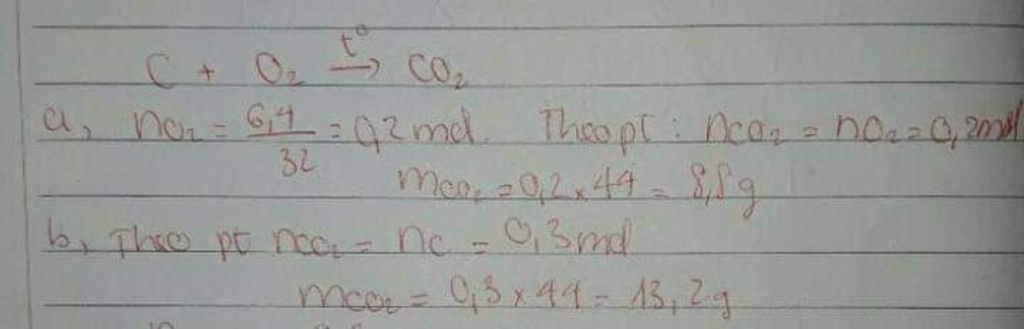 C + O₂ t°→ CO₂
a, nO₂ = 6,4/32 = 0,2 mol. Theo pt : nCO₂ = nO₂ = 0,2mol
mCO₂ = 0,2 x 44 = 8,8g
b, Theo pt nCO₂ = nC = 0,3 mol
mCO₂ = 0,3 x 44 = 13,2g